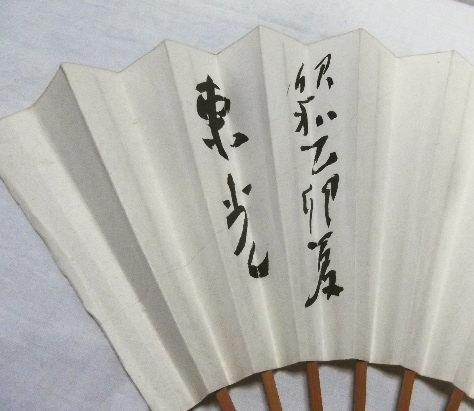 昭和乙卯夏
東光